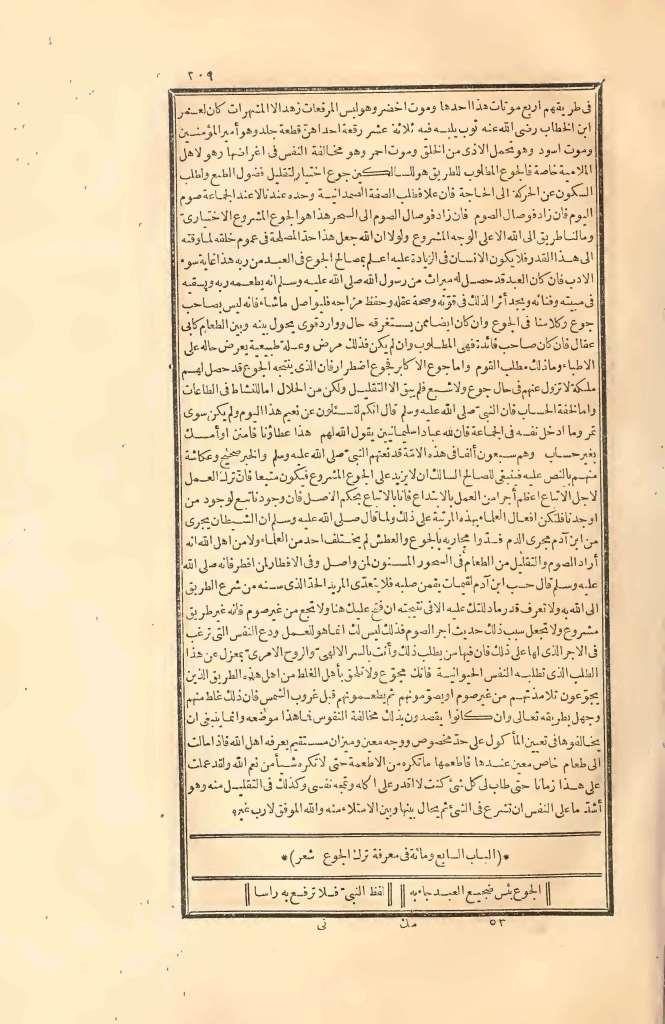 ٢٠٩
فى طريقهم اربع موتات هذا احدها وموت اخضر وهو لبس المرقعات زهدا لا المشهرات كان لعمر
ابن الخطاب رضى الله عنه ثوب يلبسه فيه ثلاثة عشر رقعة احداهن قطعة جلد وهو أمير المؤمنين
وموت اسود وهو تحمل الاذى من الخلق وموت احمر وهو مخالفة النفس فى اغراضها وهو لاهل
الملامية خاصة فالجوع المطلوب للطريق هو للسالكين جوع اختيار لتقليل فضول الطبع ولطلب
السكون عن الحركة الى الحاجة فان علا فلطلب الصفة الصمدانية وحده عندنا لا عند الجماعة صوم
اليوم فان زاد فوصال الصوم فان زاد فوصال الصوم الى السحر هذا هو الجوع المشروع الاختيارى
ومالنا طريق الى الله الا على الوجه المشروع ولولا ان الله جعل هذا حد المصلحة فى عموم خلقه لما وقته
الى هذا القدر فلا يكون الانسان فى الزيادة عليه اعلم بمصالح الجوع فى العبد من ربه هذا غاية سوء
الادب فان كان العبد قد حصل له ميراث من رسول الله صلى الله عليه وسلم انه يطعمه ربه ويسقيه
فى مبيته وفنائه ويجد أثر الذلك فى قوته وصحة عقله وحفظ مزاجه فليواصل ماشاء فانه ليس بصاحب
جوع وكلامنا فى الجوع وان كان ايضا ممن يستغرقه حال ووارد قوى يحول بينه وبين الطعام كأبى
عقال فان كان صاحب فائدة فهى المطلوب وان لم يكن فذلك مرض وعلة طبيعية يعرض حاله على
الاطباء وماذلك مطلب القوم واما جوع الاكابر فجوع اضطرار فان الذى ينتجه الجوع قد حصل لهم
ملكة لا تزول عنهم فى حال جوع ولا شبع فلم يبق الا التقليل ولكن من الحلال اما للنشاط فى الطاعات
واما لخفة الحساب فان النبى صلى الله عليه وسلم قال انكم لتسئلون عن نعيم هذا اليوم ولم يكن سوى
تمر وما ادخل نفسه فى الجماعة فان لله عباد اسليمانيين يقول الله لهم هذا عطاؤنا فامنن او أمسك
بغير حساب وهم سبعون ألفا فى هذه الامة قد نعتهم النبى صلى الله عليه وسلم والخبر صحيح وعكاشة
منهم بالنص عليه فينبغى للصالح السالك ان لا يزيد على الجوع المشروع فيكون متبعا فان ترك العمل
لاجل الاتباع اعظم أجرا من العمل بالابتداع فانا بالاتباع بحكم الاصل فان وجودنا تبع لوجود من
اوجدنا فلتكن افعال العلماء بهذه المرتبة على ذلك ولما قال صلى الله عليه وسلم ان الشيطان يجرى
من ابن آدم مجرى الدم فسدوا مجاريه بالجوع والعطش لم يختلف احد من العلماء ولا من اهل الله انه
أراد الصوم والتقليل من الطعام فى السحور المسنون لمن واصل وفى الافطار لمن افطر فانه صلى الله
عليه وسلم قال حسب ابن آدم لقيمات يقمن صلبه فلا يتعدى المريد الحد الذى سنه من شرع الطريق
الى الله به ولا تعرف قدر مادللتك عليه الا فى نتيجته ان فتح عليك هنا ولا تجع من غير صوم فانه غير طريق
مشروع ولا تجعل سبب ذلك حديث اجر الصوم فذلك ليس لك انما هو للعمل ودع النفس التى ترغب
فى الاجر الذى لها على ذلك فان فيها من يطلب ذلك وأنت بالسر الالهى والروح الامرى بمعزل عن هذا
الطلب الذى تطلبه النفس الحيوانية فانك مجموع ولا تلحق بأهل الغلط من اهل هذه الطريق الذين
يجوعون تلامذتهم من غير صوم او يصومونهم ثم يطعمونهم قبل غروب الشمس فان ذلك غلط منهم
وجهل بطريقه تعالى وان كانوا يقصدون بذلك مخالفة النفوس فما هذا موضعه وانما ينبغى ان
يخالفوها فى تعيين المأكول على حد مخصوص ووجه معين وميزان مستقيم يعرفه اهل الله فاذا مالت
الى طعام خاص معين عندها فاطعمها ماتكره من الاطعمة حتى لا تكره شيأ من نعم الله ولقد عملت
على هذا زمانا حتى طاب لى كل شئ كنت لا اقدر على اكله وتمجه نفسى وكذلك فى التقليل منه وهو
أشد ما على النفس ان تشرع فى الشئ ثم يحال بينها وبين الامتلاء منه والله الموفق لارب غيره
*(الباب السابع ومائة فى معرفة ترك الجوع شعر)*
الجوع بئس ضجيع العبد جاء به لفظ النبى فلا ترفع به راسا
٥٣ مك نى